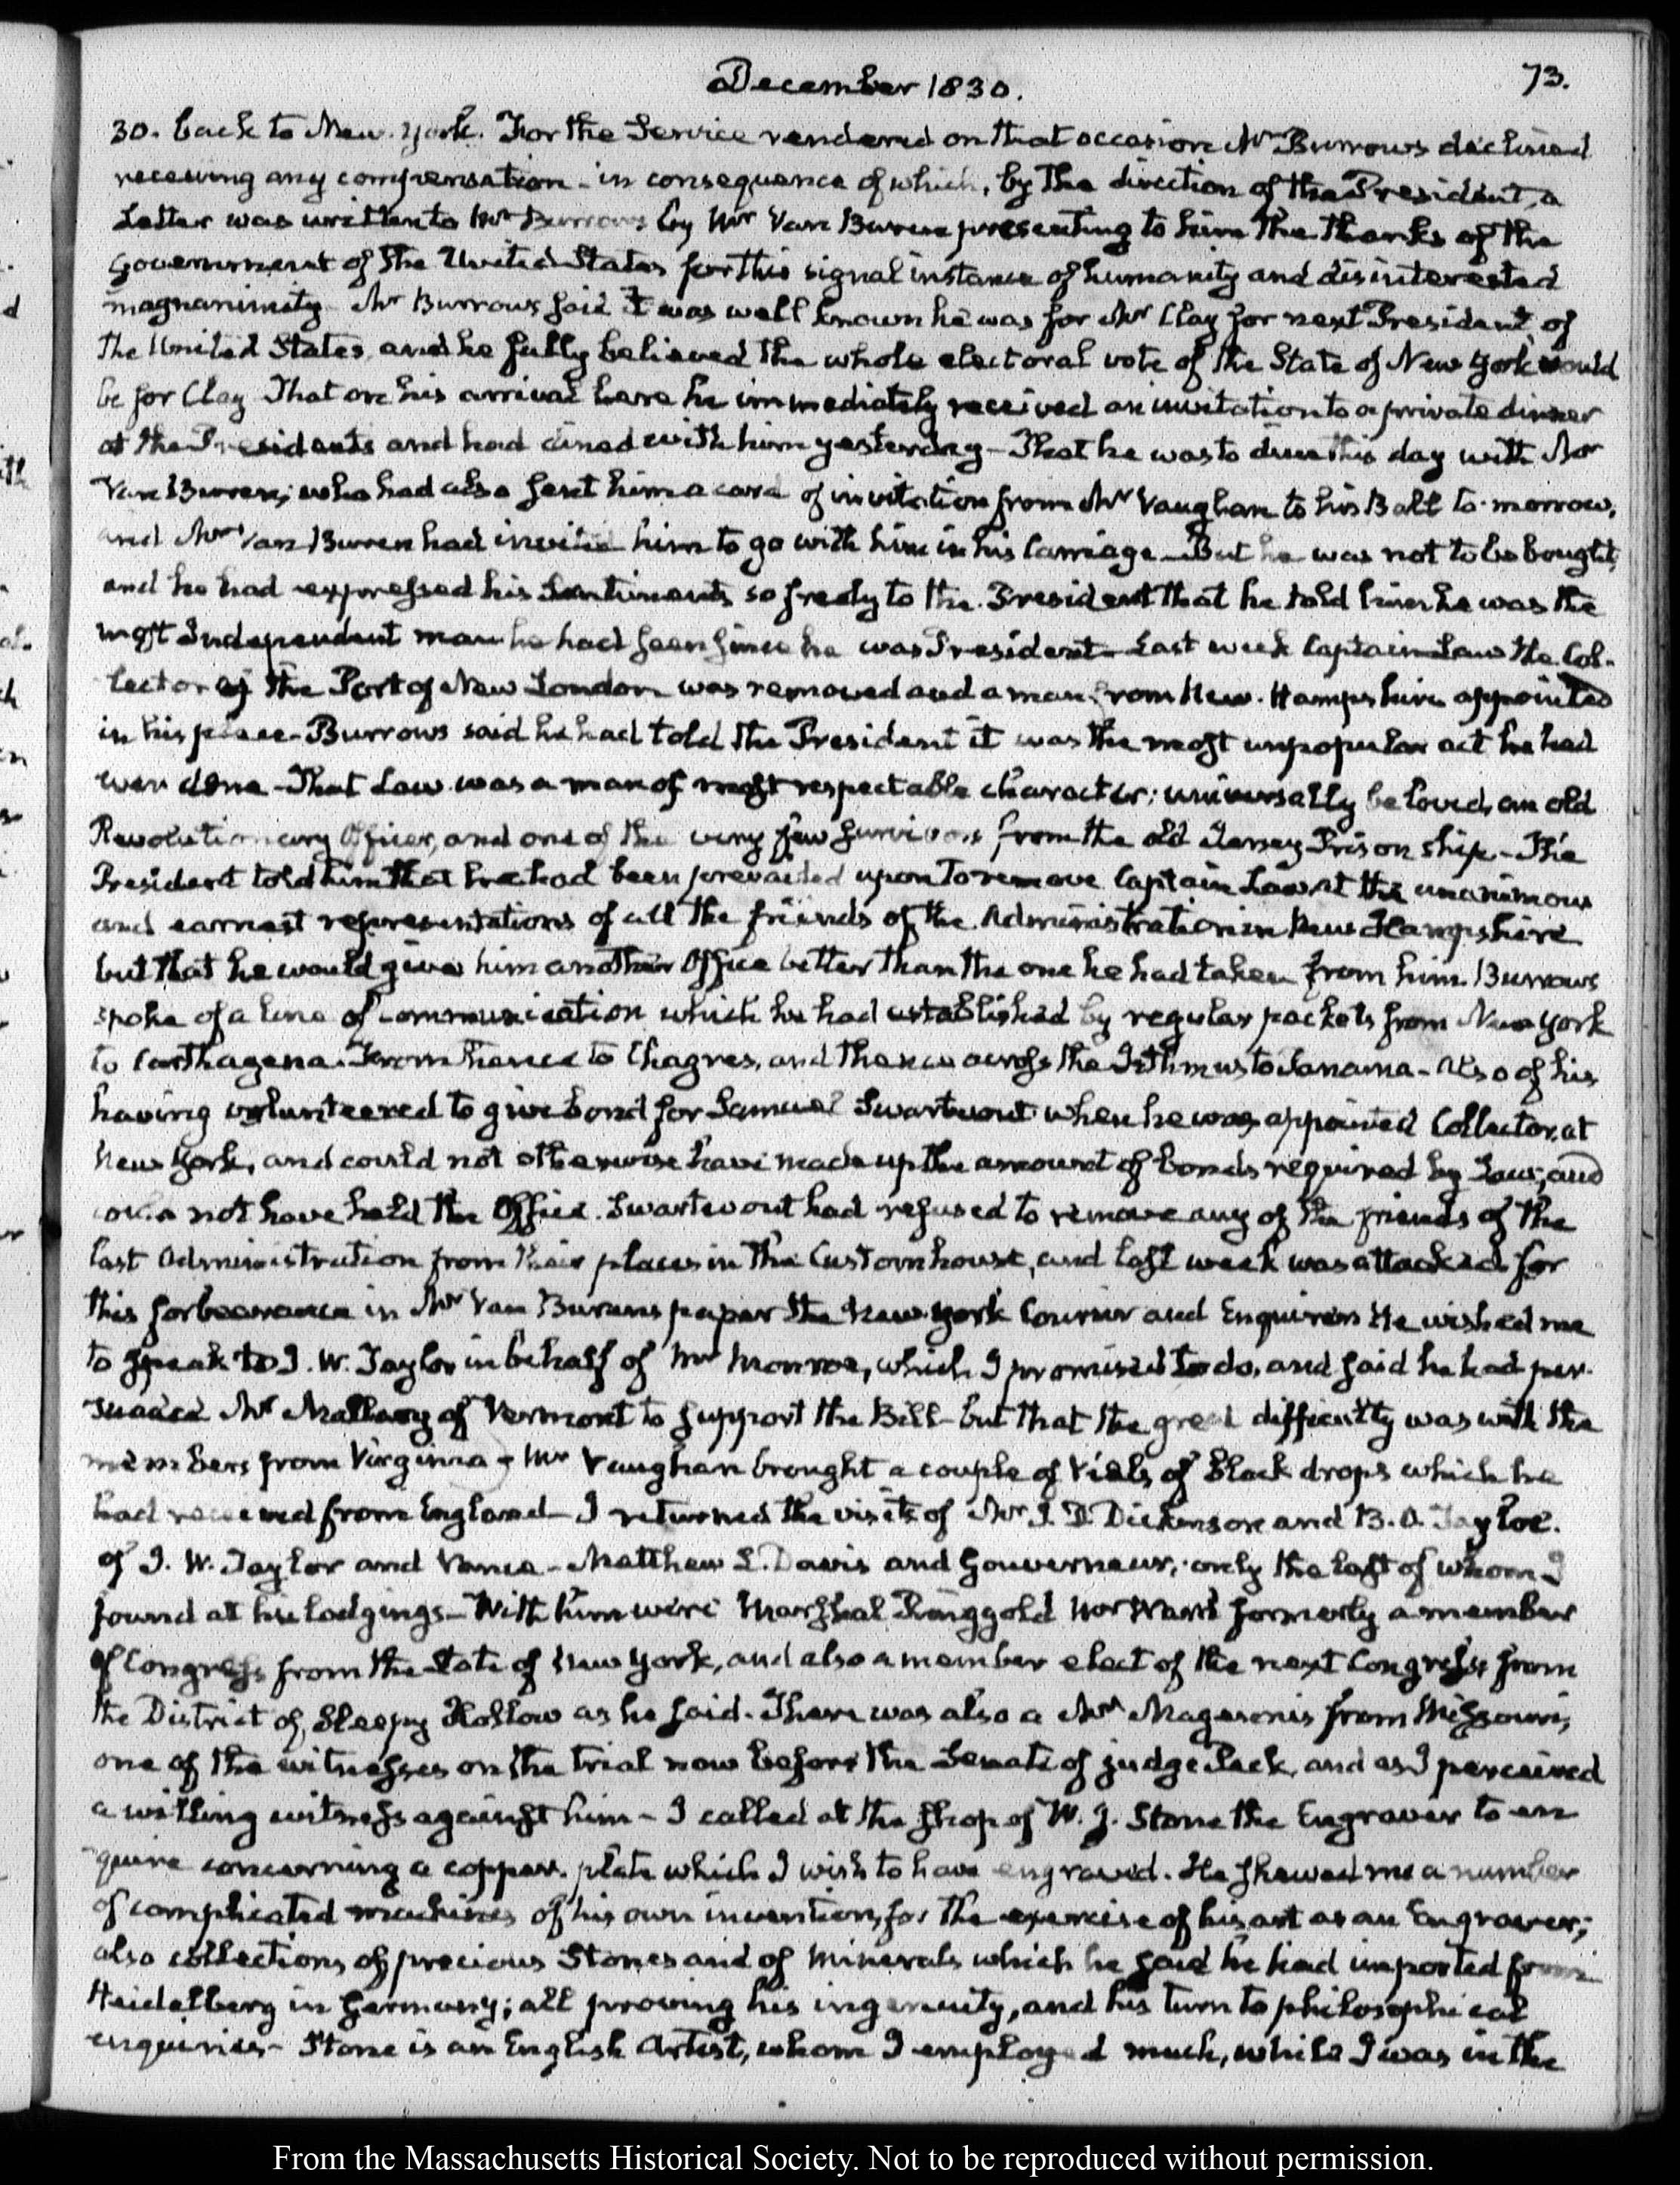 December 1830.
73.
30. back to New-York. For the Service rendered on that occasion Mr Burrows declined
receiving any compensation - in consequence of which, by the direction of the President, a
Letter was written to Mr Burrows by Mr Van Buren presenting to him the thanks of the
Government of the United States for this signal instance of humanity and disinterested
magnanimity. Mr Burrows said it was well known he was for Mr Clay for next President of
the United States, and he fully believed the whole electoral vote of the State of New York would
be for Clay. That on his arrival here he immediately received an invitation to a private dinner
at the Presidents and had dined with him yesterday - That he was to dine this day with Mr
Van Buren; who had also sent him a card of invitation from Mr Vaughan to his Ball to-morrow,
and Mr Van Buren had invited him to go with him in his Carriage - But he was not to be bought,
and he had expressed his Sentiments so freely to the President that he told him he was the
most Independent man he had seen since he was President - Last week Captain Law the Col-
lector of the Port of New London was removed and a man from New-Hampshire appointed
in his place - Burrows said he had told the President it was the most unpopular act he had
ever done - That Law was a man of most respectable character; universally beloved, an old
Revolutionary Officer, and one of the very few survivors from the old Jersey Prison ship - The
President told him that he had been prevailed upon to remove Captain Law at the unanimous
and earnest representations of all the friends of the Administration in New Hampshire
but that he would give him another Office better than the one he had taken from him. Burrows
spoke of a line of communication which he had established by regular packets from New York
to Carthagena. From thence to Chagres, and thence across the Isthmus to Panama - Also of his
having volunteered to give bond for Samuel Swartwout when he was appointed Collector at
New York, and could not otherwise have made up the amount of bonds required by Law, and
could not have held the Office. Swartwout had refused to remove any of the friends of the
last Administration from their places in the Custom house, and last week was attacked for
this forbearance in Mr Van Burens paper the New York Courier and Enquirer. He wished me
to speak to J. W. Taylor in behalf of Mr Monroe, which I promised to do, and said he had per-
suaded Mr Mallary of Vermont to support the Bill - but that the great difficulty was with the
members from Virginia - Mr Vaughan brought a couple of Vials of Black drops which he
had received from England - I returned the visits of Mr J. D. Dickinson and B. O. Tayloe.
of J. W. Taylor and Vance - Matthew L. Davis and Gouverneur; only the last of whom I
found at his lodgings - With him were Marshal Ringgold Mr Ward formerly a member
of Congress from the State of New York, and also a member elect of the next Congress from
the District of Sleepy Hollow as he said. There was also a Mr Magenis from Missouri,
one of the witnesses on the trial now before the Senate of judge Peck, and as I perceived
a willing witness against him - I called at the shop of W. J. Stone the Engraver to en
quire concerning a copper-plate which I wish to have engraved. He shewed me a number
of complicated machines of his own invention, for the exercise of his art as an Engraver;
also collections of precious Stones and of Minerals which he said he had imported from
Heidelberg in Germany; all proving his ingenuity, and his turn to philosophical
enquiries - Stone is an English Artist, whom I employed much, while I was in the
From the Massachusetts Historical Society. Not to be reproduced without permission.